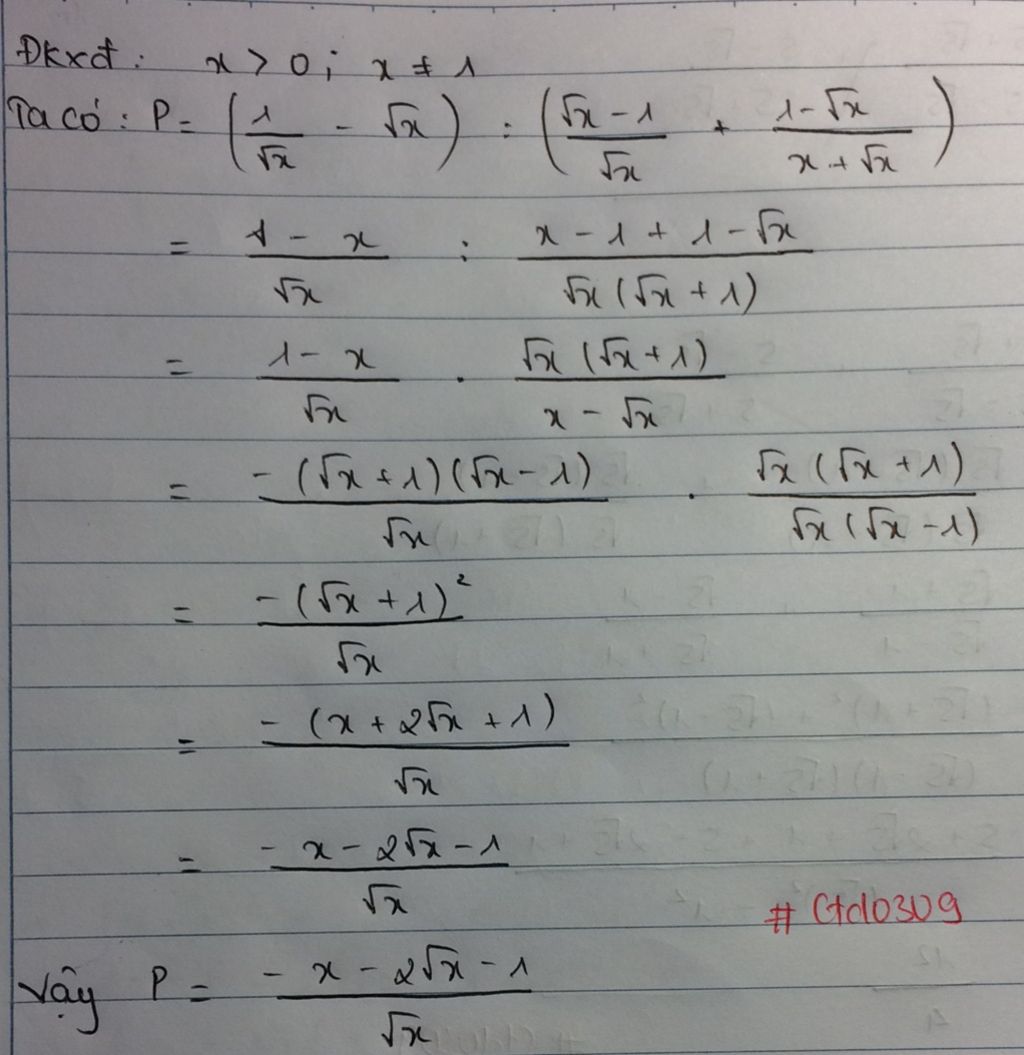 Đkxđ: x > 0; x ≠ 1
Ta có: P = (1/√x - √x) : ((√x - 1)/√x + (1 - √x)/(x + √x))
= (1 - x)/√x : (x - 1 + 1 - √x)/(√x(√x + 1))
= (1 - x)/√x . (√x(√x + 1))/(x - √x)
= (-(√x + 1)(√x - 1))/√x . (√x(√x + 1))/(√x(√x - 1))
= (-(√x + 1)²)/√x
= (-(x + 2√x + 1))/√x
= (-x - 2√x - 1)/√x
# Ctd0309
Vậy P = (-x - 2√x - 1)/√x